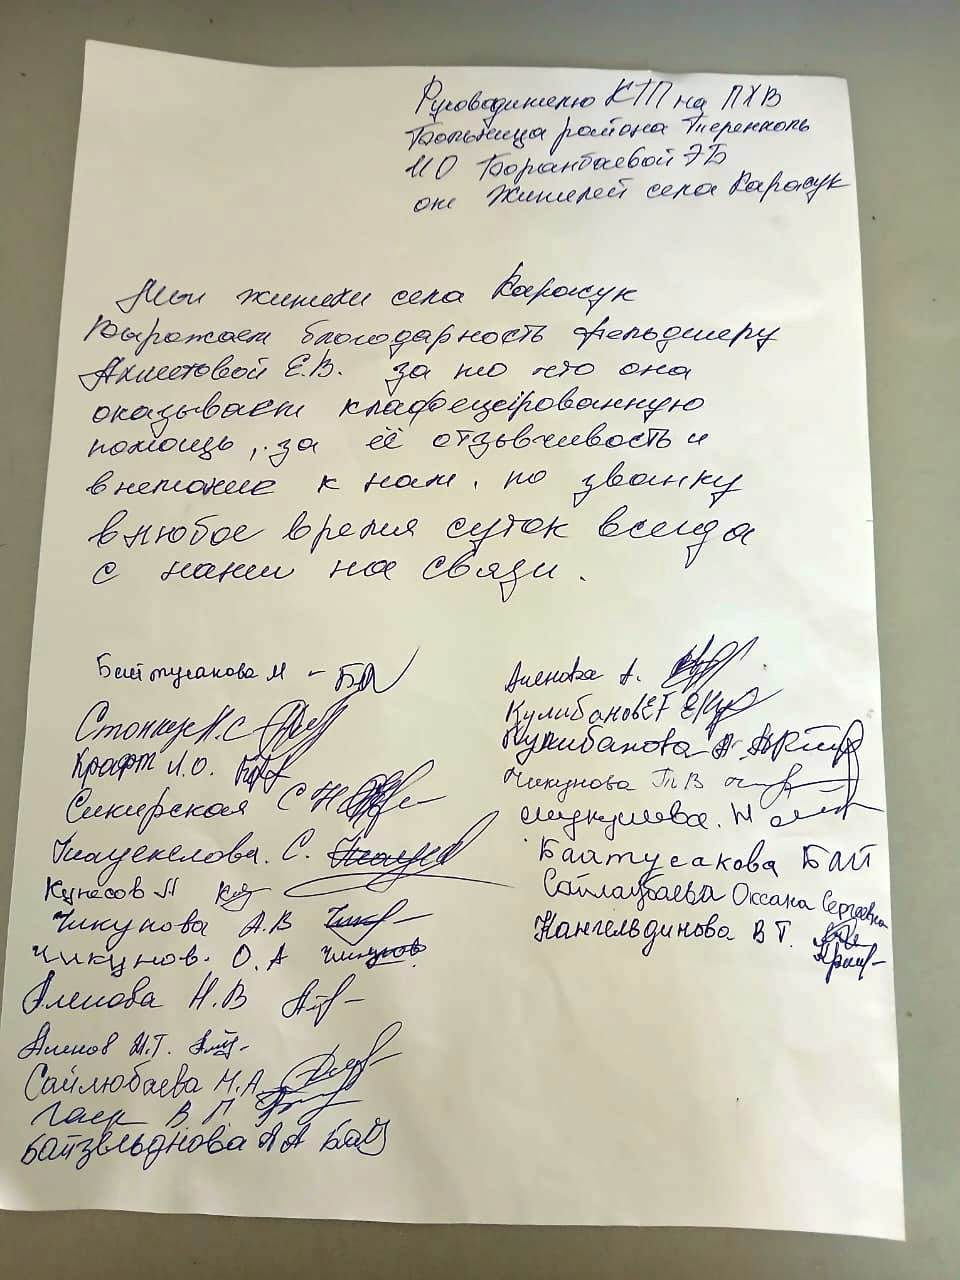 Руководителю КГП на ПХВ
Больница района Теренколь
МО Борантаевой Э Б
от жителей села Карасук
Мы жители села Карасук
выражаем благодарность фельдшеру
Ахметовой Е.В. за то что она
оказывает клафецированную
помощь, за её отзывчивость и
внемание к нам, по званку
в любое время суток всегда
с нами на связи.
Байтусакова М
Крафт Л.О.
Сикирская С Н
С.
Кунесов
Чикунова А.В
Чикунов. О.А Чикунов
Аленова Н.В
Аленов М.Т.
Сайлюбаева М.А
В П
А А Бай
Аленова А.
Кулибанов Е Г
Кулибанова А
Чикунова Т В
Байтусакова БАЙ
Оксана Сергеевна
Кангельдинова В Т.